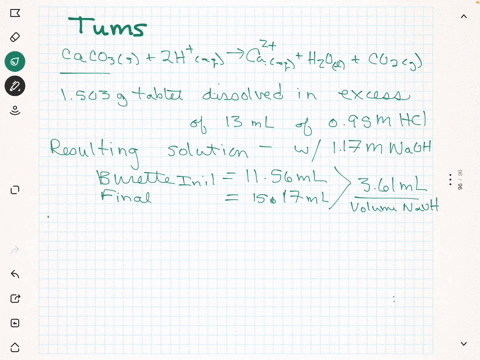 Tums
CaCO3(s) + 2H+(aq) → Ca2+(aq) + H2O(l) + CO2(g)
1.503 g tablet dissolved in excess
of 13 mL of 0.95M HCl
Resulting solution - w/ 1.17M NaOH
Burette Inil = 11.56 mL
Final = 15.17 mL
3.61 mL
Volume NaOH